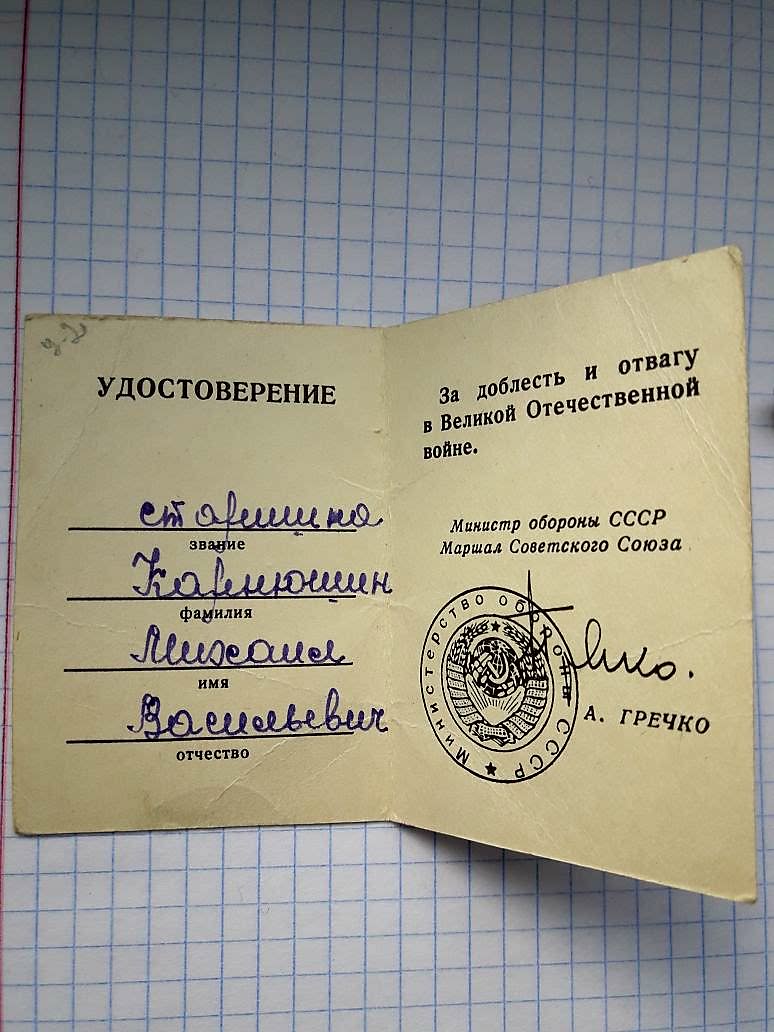 УДОСТОВЕРЕНИЕ
старшина
звание
Карнюшин
фамилия
Михаил
имя
Васильевич
отчество
За доблесть и отвагу
в Великой Отечественной
войне.
Министр обороны СССР
Маршал Советского Союза
Министерство обороны СССР
А. ГРЕЧКО